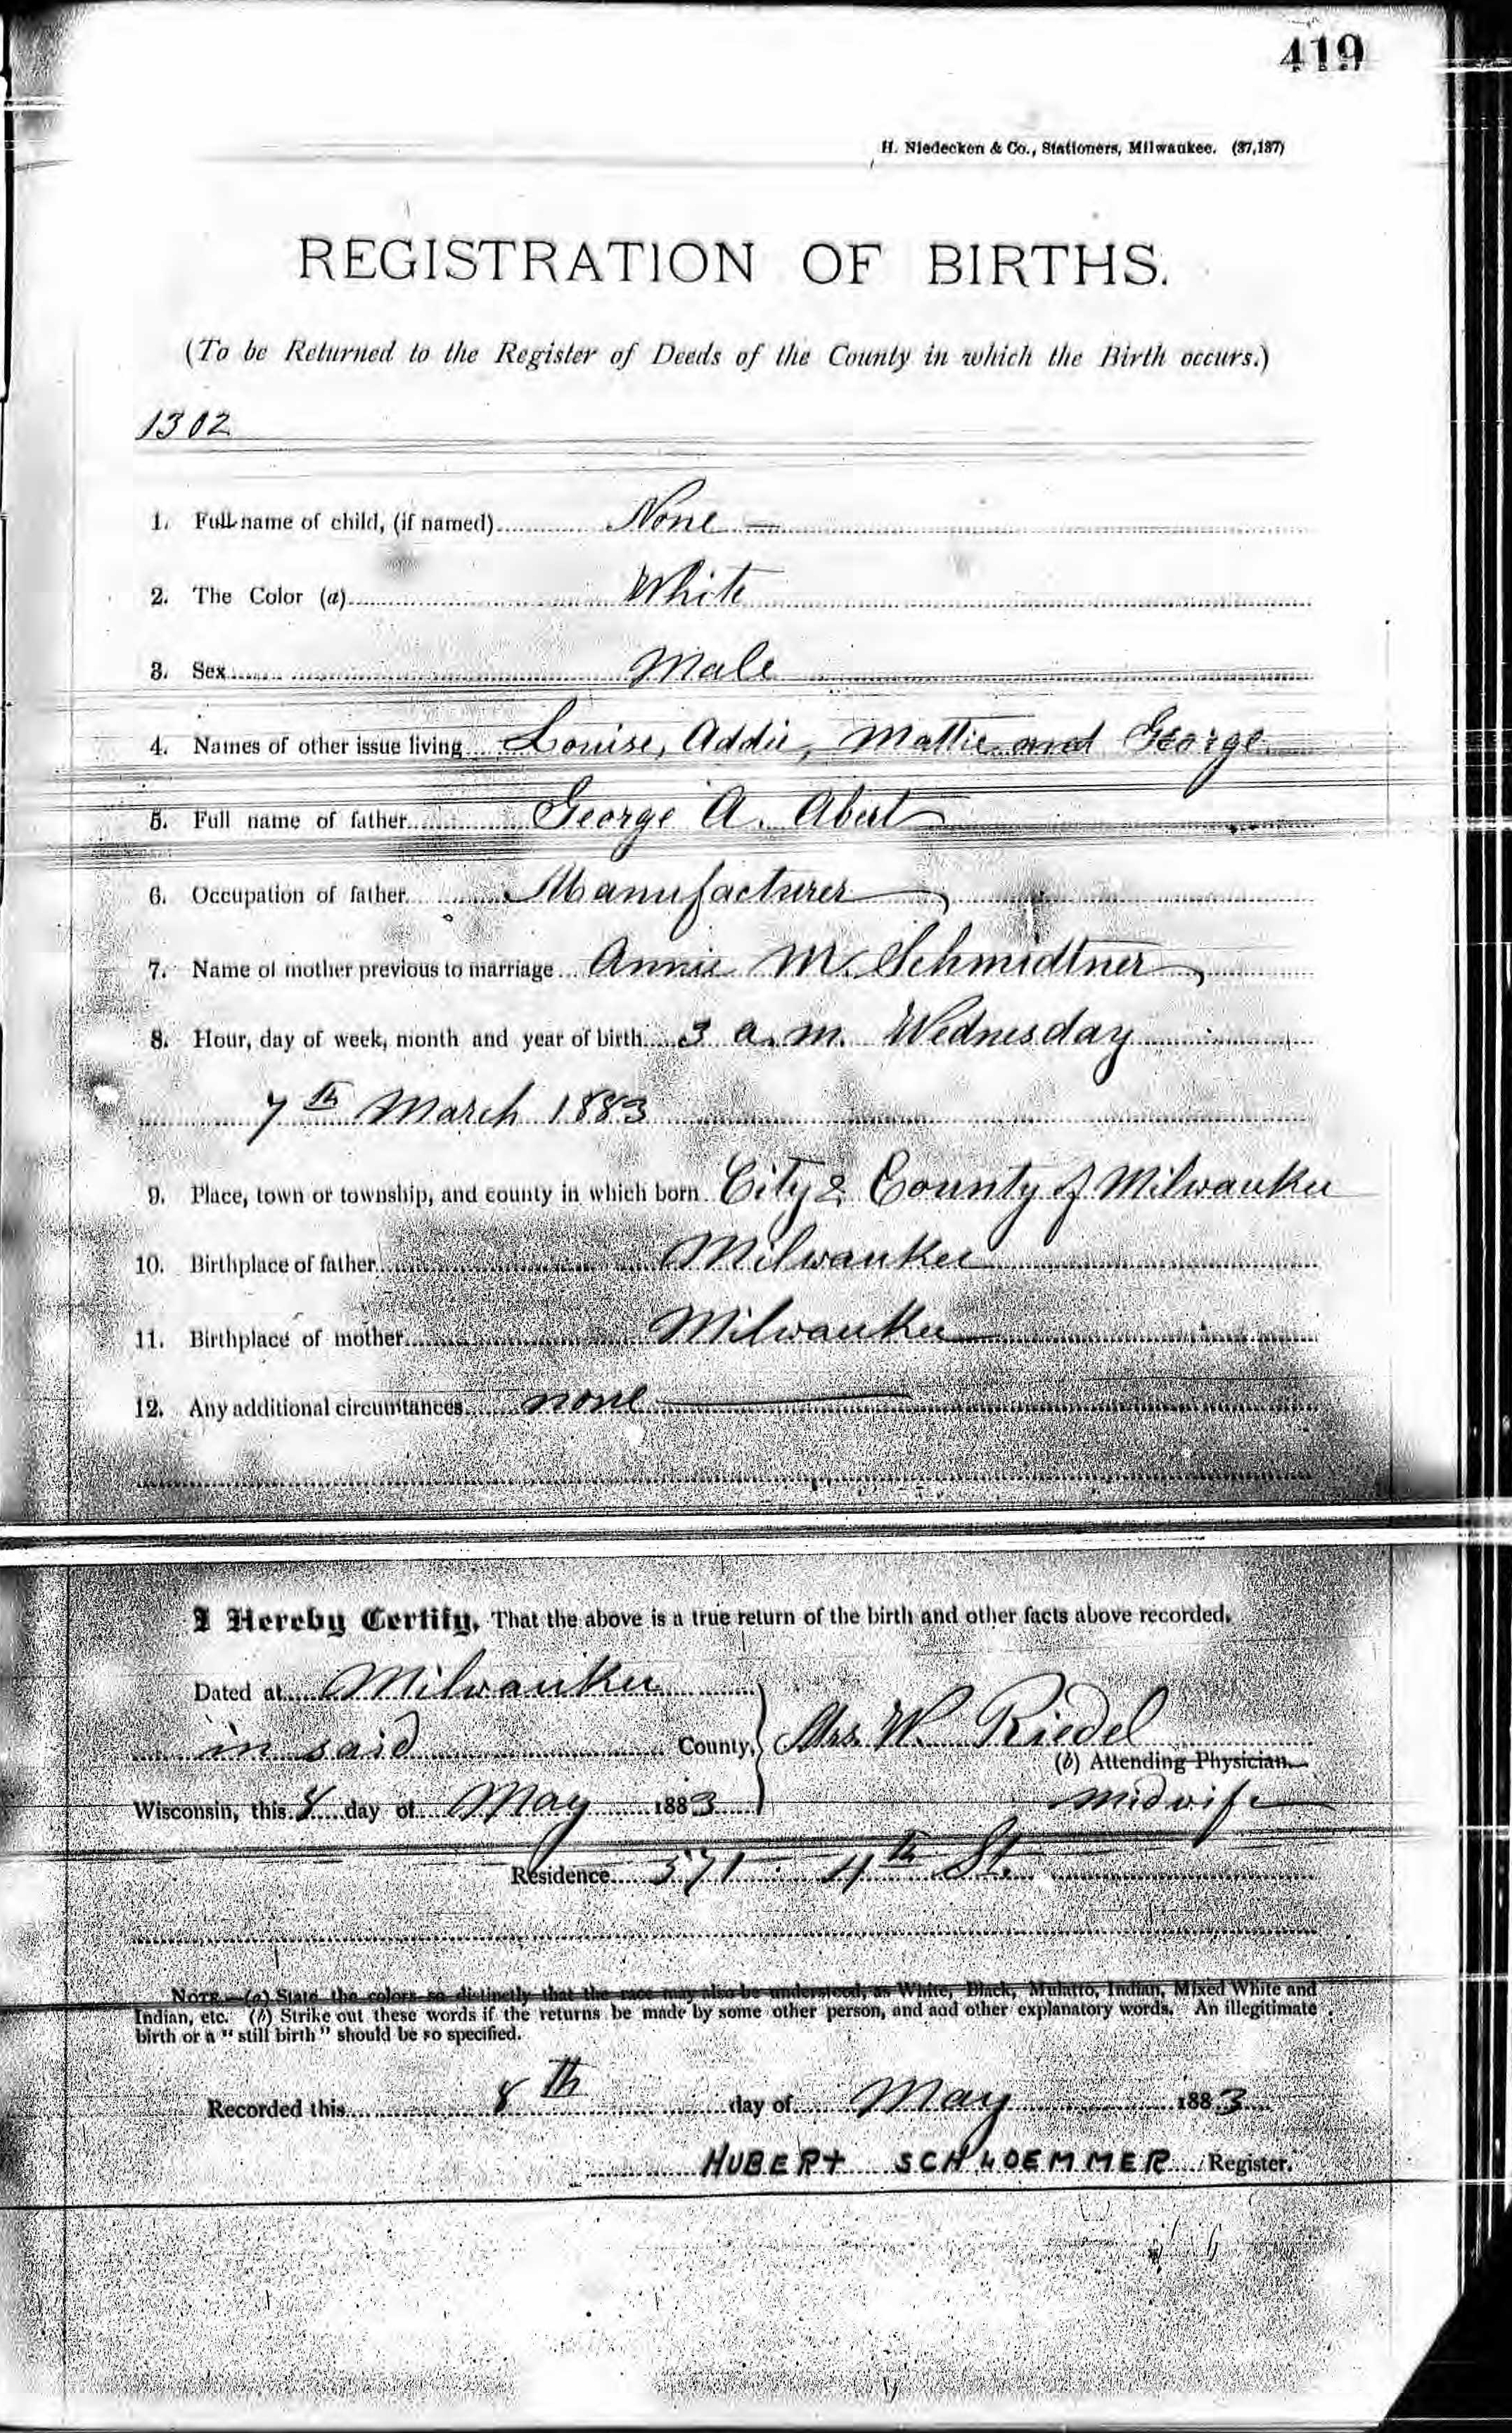 419
H. Niedecken & Co., Stationers, Milwaukee. (37,187)
REGISTRATION OF BIRTHS.
(To be Returned to the Register of Deeds of the County in which the Birth occurs.)
1302
1. Full name of child, (if named) None
2. The Color (a) White
3. Sex Male
4. Names of other issue living Louise, Addie, Mattie and George
5. Full name of father George A. Abert
6. Occupation of father Manufacturer
7. Name of mother previous to marriage Annie M. Schmidtner
8. Hour, day of week, month and year of birth 3 a.m. Wednesday
7th March 1883
9. Place, town or township, and county in which born City & County of Milwaukee
10. Birthplace of father Milwaukee
11. Birthplace of mother Milwaukee
12. Any additional circumstances none
I Hereby Certify, That the above is a true return of the birth and other facts above recorded.
Dated at Milwaukee
in said County, Mrs. W. Riedel
(b) Attending Physician
Wisconsin, this 8 day of May 1883 midwife
Residence 571 4th St.
NOTE.—(a) State the colors so distinctly that the race may also be understood, as White, Black, Mulatto, Indian, Mixed White and
Indian, etc. (b) Strike out these words if the returns be made by some other person, and add other explanatory words. An illegitimate
birth or a "still birth" should be so specified.
Recorded this 8th day of May 1883
HUBERT SCHLOEMMER Register.